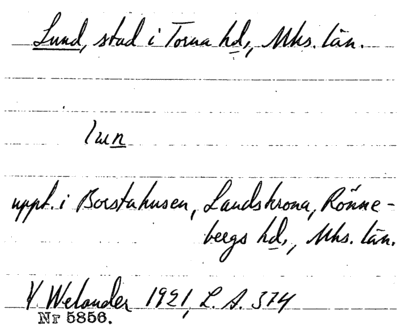 Lund, stad i Torna hd, Mhs. län.
lun
uppt. i Borstahusen, Landskrona, Rönne-
bergs hd., Mhs. län.
Y Welander 1921, L. A. 374
Nr 5856.